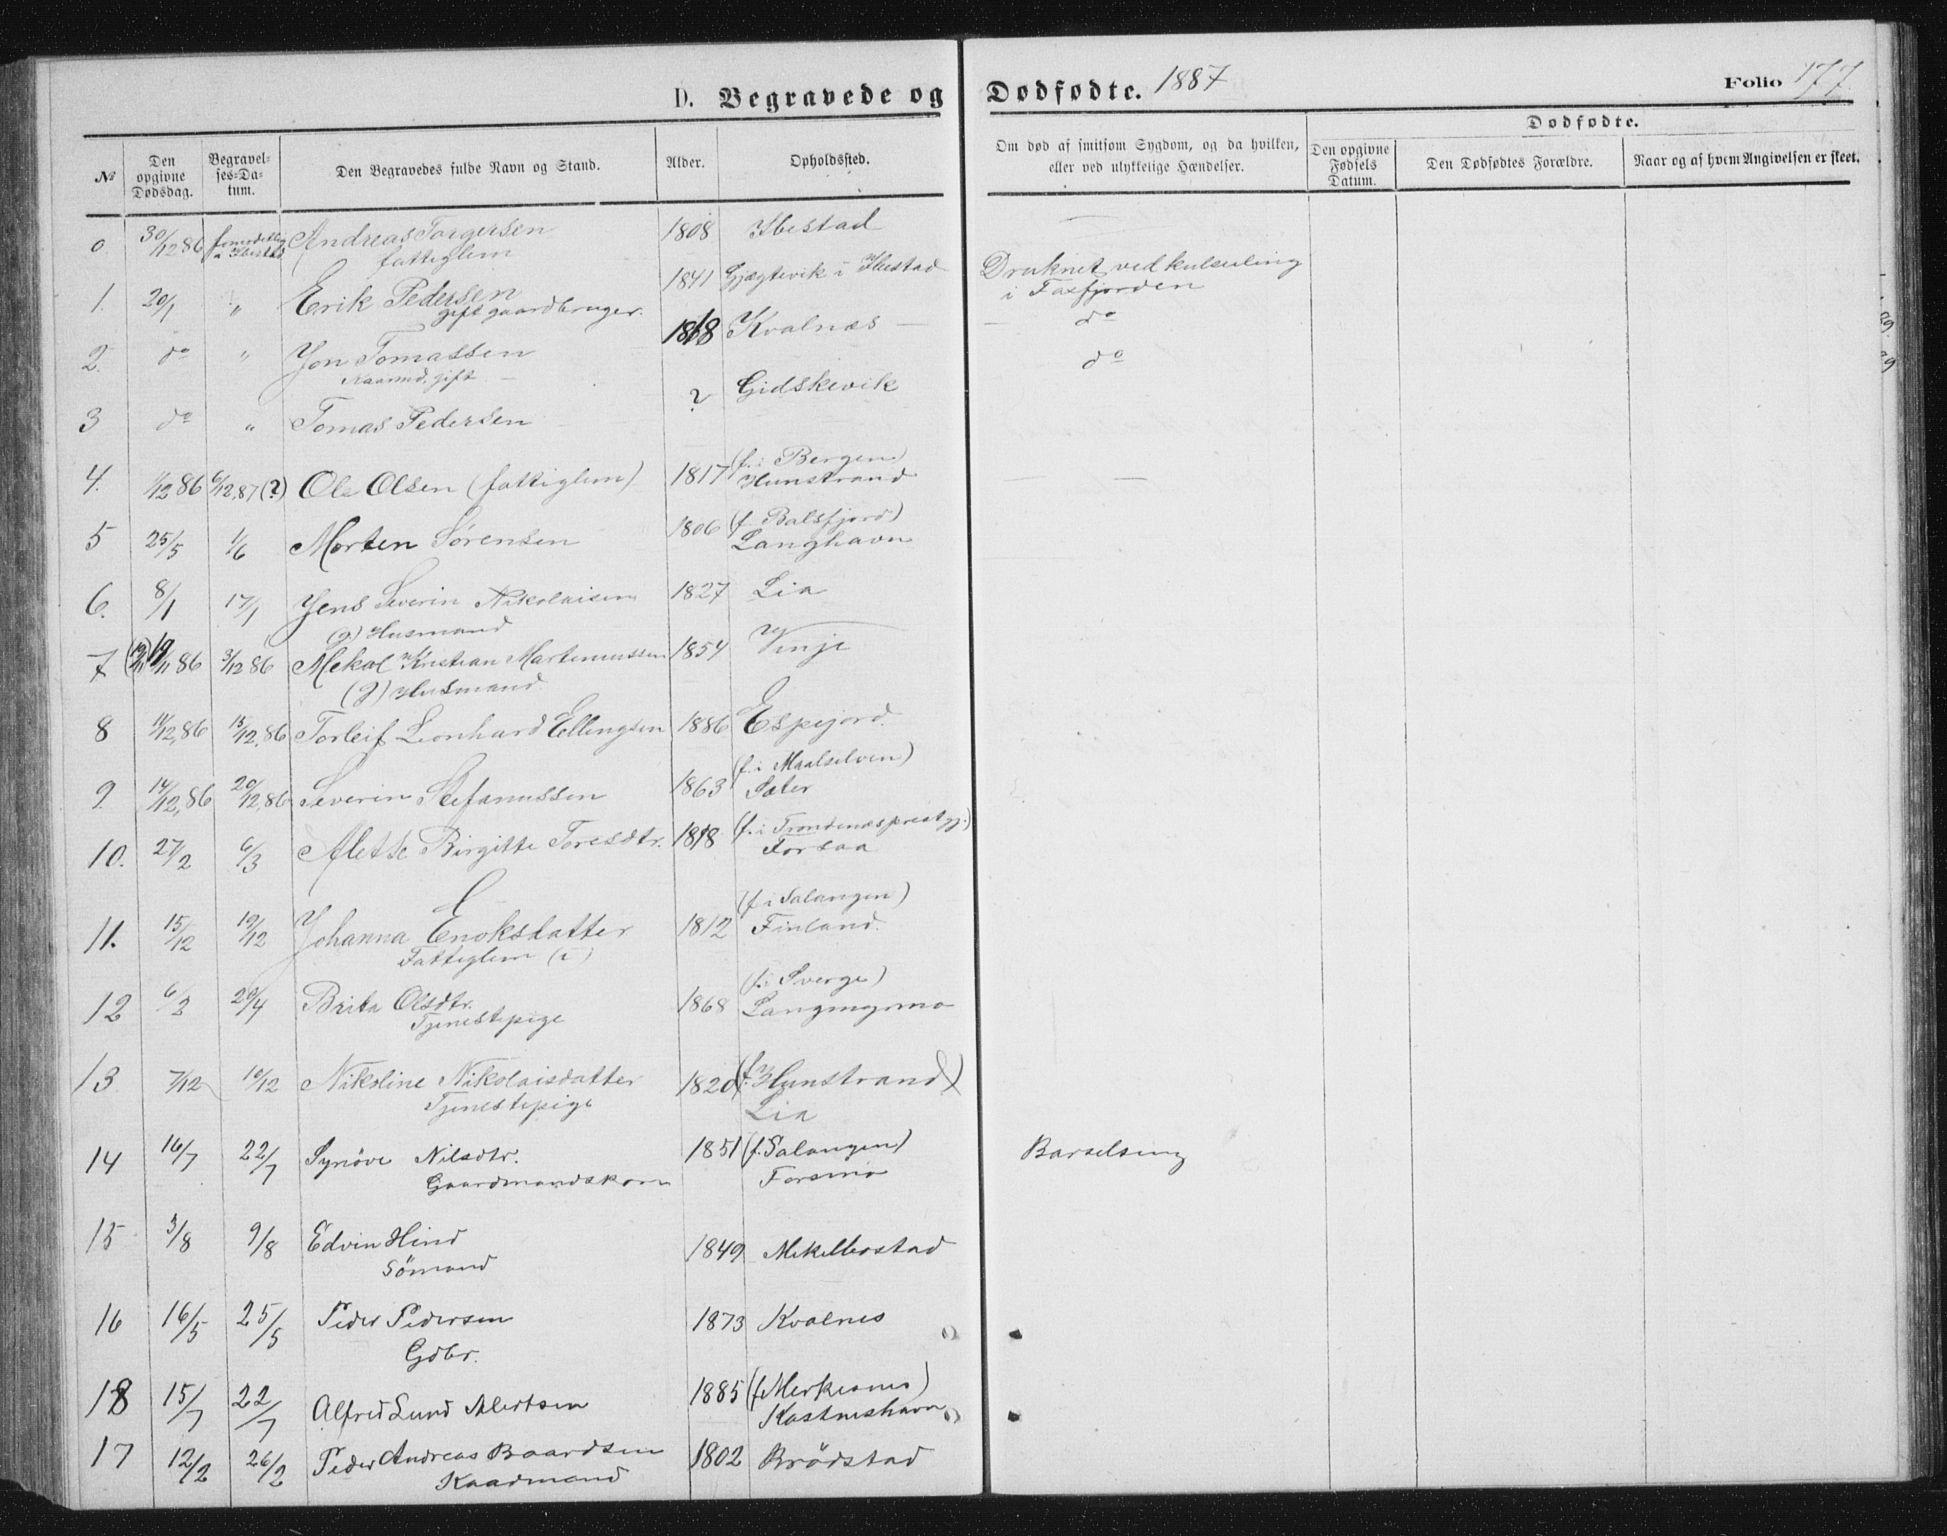 D. Begravede og Dødfødte. 1887 Folio 177.
№
Den opgivne Dødsdag.
Begravel-ses-Da-tum.
Den Begravedes fulde Navn og Stand.
Alder.
Opholdssted.
Om død af smitsom Sygdom, og da hvilken, eller ved ulykkelige Hændelser.
Dødfødte.
Den opgivne Fødsels Datum.
Den Dødfødtes Forældre.
Naar og af hvem Angivelsen er skeet.
0 30/12 86 Ibestad Andreas Torgersen 1808 Ibestad —
fattiglem
1. 20/1 " Erik Pedersen 1841 Gjægtevik i Ibestad Druknet ved kulseiling
gift gaardbruger. i Faxfjorden
2. do " Jon Tomassen 1818 Kvalnæs — do
Kaarmd. gift —
3 do " Tomas Pedersen ? Gidskevik do
4. 1/12 86 6/12, 87 (?) Ole Olsen (fattiglem) 1817 (f. i Bergen)
Hunstrand
5 25/5 1/6 Morten Sørensen 1806 (f. Balsfjord)
Langhavn
6. 8/1 17/1 Jens Severin Nikolaisen 1827 Lia
(g) Husmand
7 19/11 86 3/12 86 Mekal Kristian Martinussen 1854 Vinje
(g) Husmand
8 11/12, 86 15/12, 86 Torleif Leonhard Ellingsen 1886 Espejord.
9 14/12, 86 20/12, 86 Severin Stefanussen 1863 (f. i Maalselven)
Sæter
10. 27/2 6/3 Alette Birgitte Toresdtr. 1818 (f. i Trondenæs prestgj.)
Forsaa
11. 15/12 19/12 Johanna Enoksdatter 1812 (f i Salangen)
Fattiglem Finland.
12 6/3 20/4 Brita Olsdtr. 1868 (f. i Sverge)
Tjenestepige Langmyrmo
13 7/12 10/12 Nikoline Nikolaisdatter 1820 (f. Hunstrand)
Tjenestepige Lia
14 16/7 22/7 Synöve Nilsdtr. 1851 (f. Salangen) Barselseng
Gaardmandskone Forsmo
15 3/8 9/8 Edvin Hind 1849 Mikkelbostad
Sömand
16 16/5 25/5 Peder Pedersen 1873 Kvalnes
Gdbr.
18 15/7 22/7 Alfred Lund Albertsen 1885 (f Merkesnes)
Kastneshavn
17 12/2 26/2 Peder Andreas Baardsen 1802 Brödstad
Kaarmand